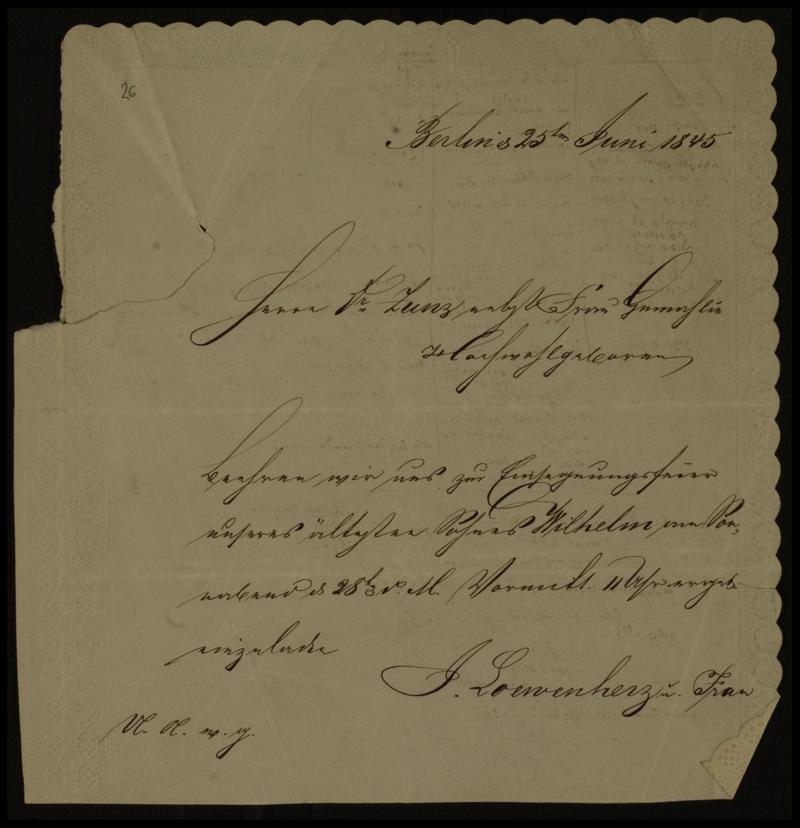 26
Berlin d 25ten Juni 1845
Herrn Dr. Zunz nebst Frau Gemahlin
Hochwohlgeboren
beehren wir uns zur Einsegnungsfeier
unseres ältesten Sohnes Wilhelm am Son-
nabend d 28ten d. M. Vormitt. 11 Uhr ergeb.
einzuladen
J. Loewenherz u. Frau
U. A. w. g.